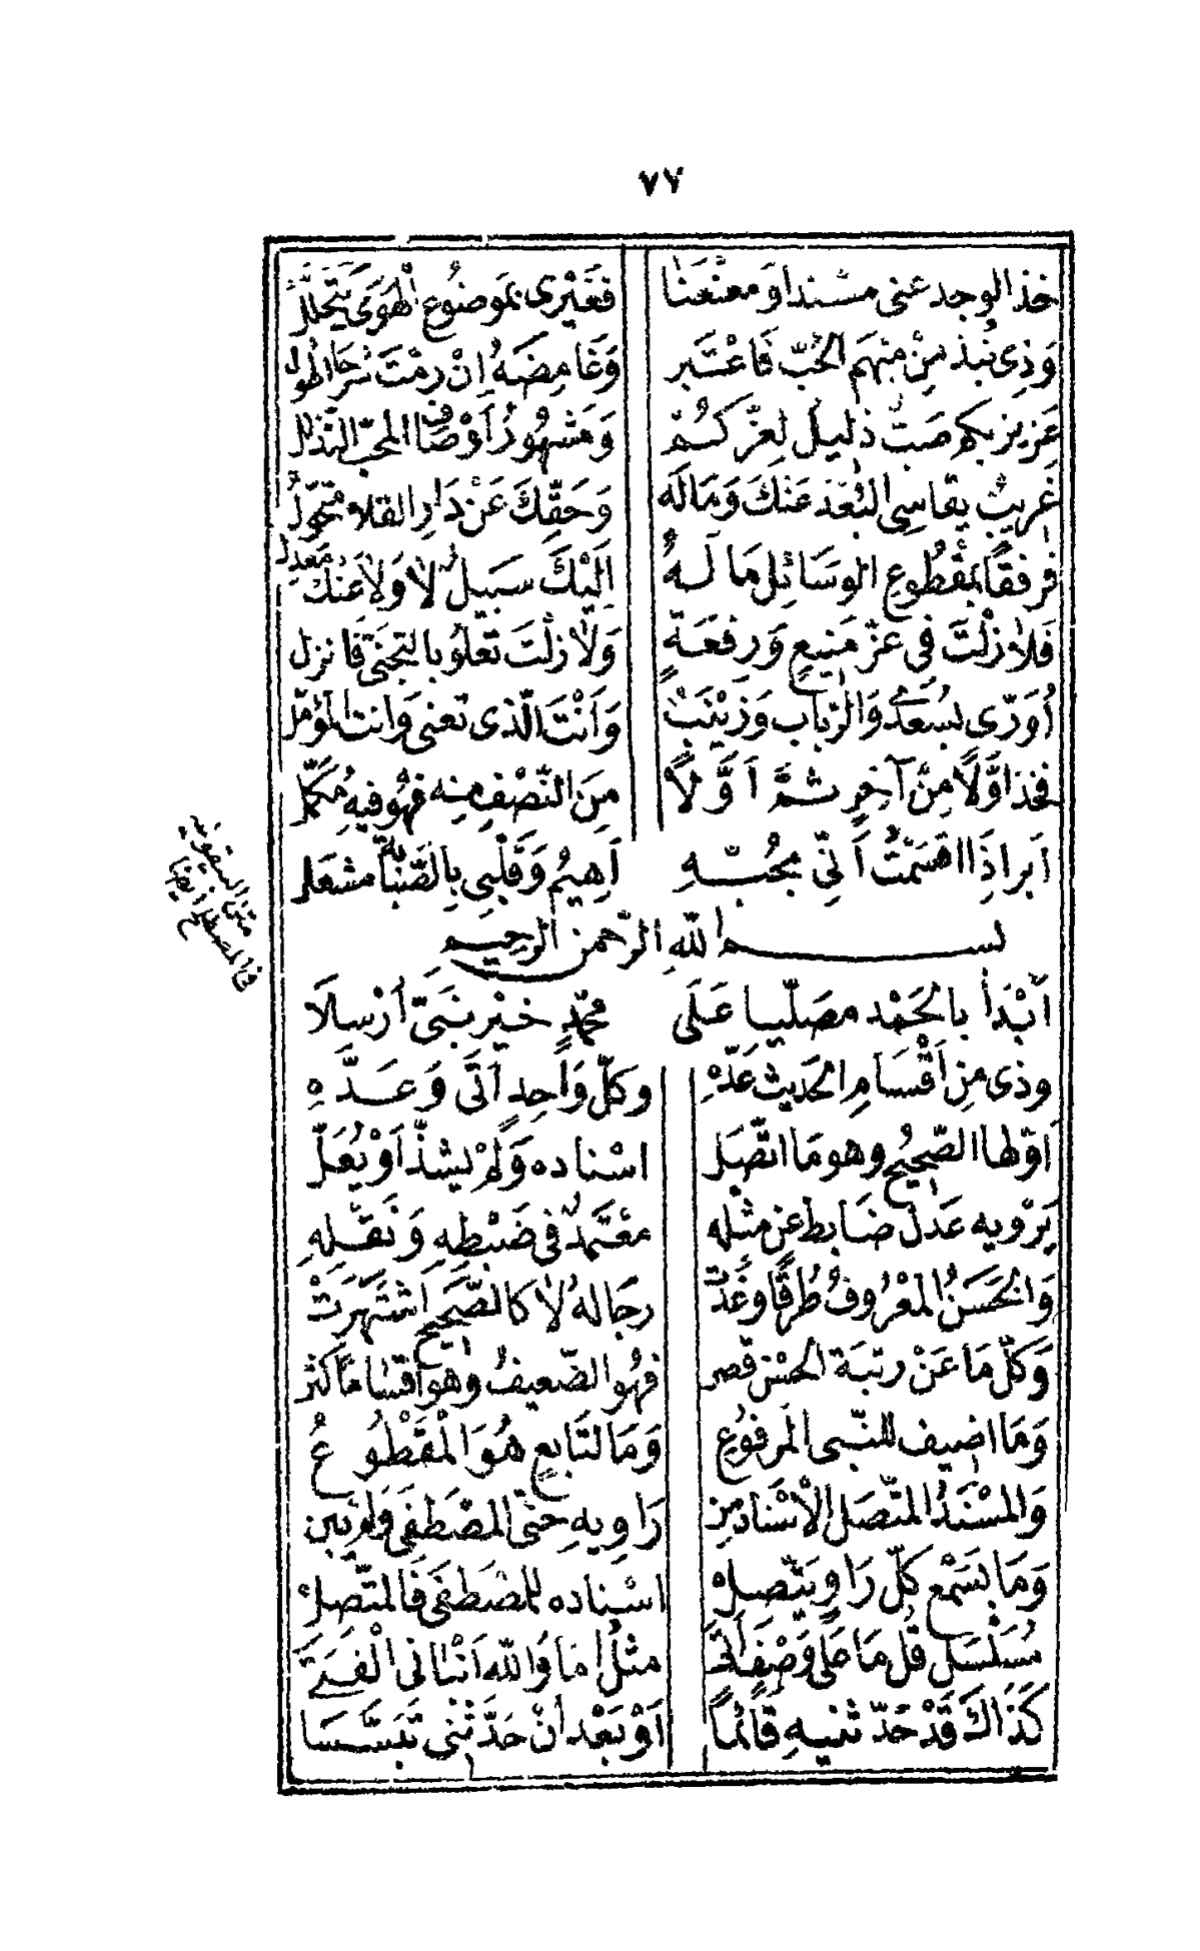 ٧٧
خذ الوجد عنى مسندا وَمعنعَنا فغَيْرى بمَوضُوع الْهَوَى يَتَحَلَّلُ
وَذِى نُبَذ مِنْ مبْهَم الحُبّ فَاعْتَبر وَغَامِضَهُ اِنْ رمْتَ شَرحَا اطول
عَزيز بكم صَبّ ذليل لعِزّكُمْ وَمَشهُورُ اَوْصَافِ المحبّ التذلل
غَريبٌ يقاسِى البُعْدَ عَنكَ وَمَالَه وَحَقّكَ عَنْ دَارِ القلا متحّولُ
فرفقًا بمَقْطُوعِ الوسَائلِ مَا لَهُ اِلَيْكَ سَبيل لا وَلا عَنْكَ مَعدِل
فَلا زلْتَ فى عزّ مَنيعٍ وَرفعَةٍ وَلا زلْتَ تَعْلُو بالتجنّى فَانزل
اُوَرّى بسُعْدَى وَالرّبَاب وَزيْنَبْ وَاَنْتَ الّذى تعنى وَانت المؤمّل
فخذ اوَّلًا مِنْ آخِرٍ ثمَّ اَوَّلًا مِنَ النّصْفِ مِنه فهُو فيهِ مُكمّل
اَبراذَا اقسَمْتُ اَنّى بحُبّهِ اَهيمُ وَقَلْبى بِالصَّبَابَةِ مشعَل
بسم اللهِ الرّحمن الرحيم
متن البيقونيه
فى المصطلح ايضا
اَبْدَأ بالحَمْد مصَلّيا عَلَى محمّدٍ خَيْر نبَىّ اَرْسِلاَ
وذى مِن اَقْسَام الحَديث عَدّه وَكلّ وَاحِدٍ اَتَى وَعَدَّهِ
اَوّلها الصّحيحُ وهو مَا اتّصَل اسْناده وَلمْ يشذّ اَوْ يُعَلّ
يَرْويه عَدل ضَابط عن مثْله معْتَمدٌ فى ضَبْطِهِ وَنَقْلِهِ
وَالحَسَنُ المَعْرُوف طُرقًا وغَدَتْ رجَالهُ لاَ كالصَّحيحِ اشْتَهرَتْ
وَكلّ مَا عَنْ رتبَة الحسْن قصر فهُو الضّعيفُ وهو اقسَاما كَثر
وَمَا اضيف للنّبى المَرفُوعُ وَمَا لتَابعٍ هُوَ الْمَقْطُوعُ
وَالمسْنَدُ المتّصَل الاسْنَاد من رَاويهِ حتّى المصْطَفَى وَلم يَبِن
وَمَا بسَمْع كلّ رَاوٍ يتّصل اسْناده للمصْطَفَى فَالمتّصِل
مُسَلْسَل قُل مَا عَلَى وَصْفٍ اَتَى مثْلُ اَمَا وَاللهِ اَنْبانى الْفَتَى
كَذَاكَ قَدْ حَدّثنيهِ قَائمًا اَوْ بَعْد اَنْ حَدّثَنى تَبَسَّمَا